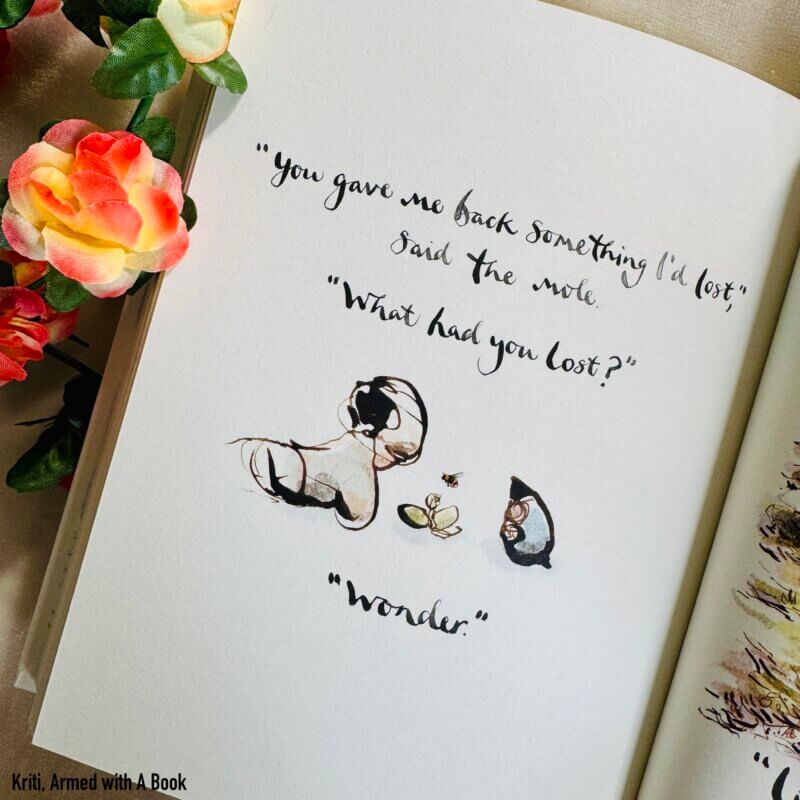 "You gave me back something I'd lost,"
said the mole.
"What had you lost?"
"Wonder."
Kriti, Armed with A Book